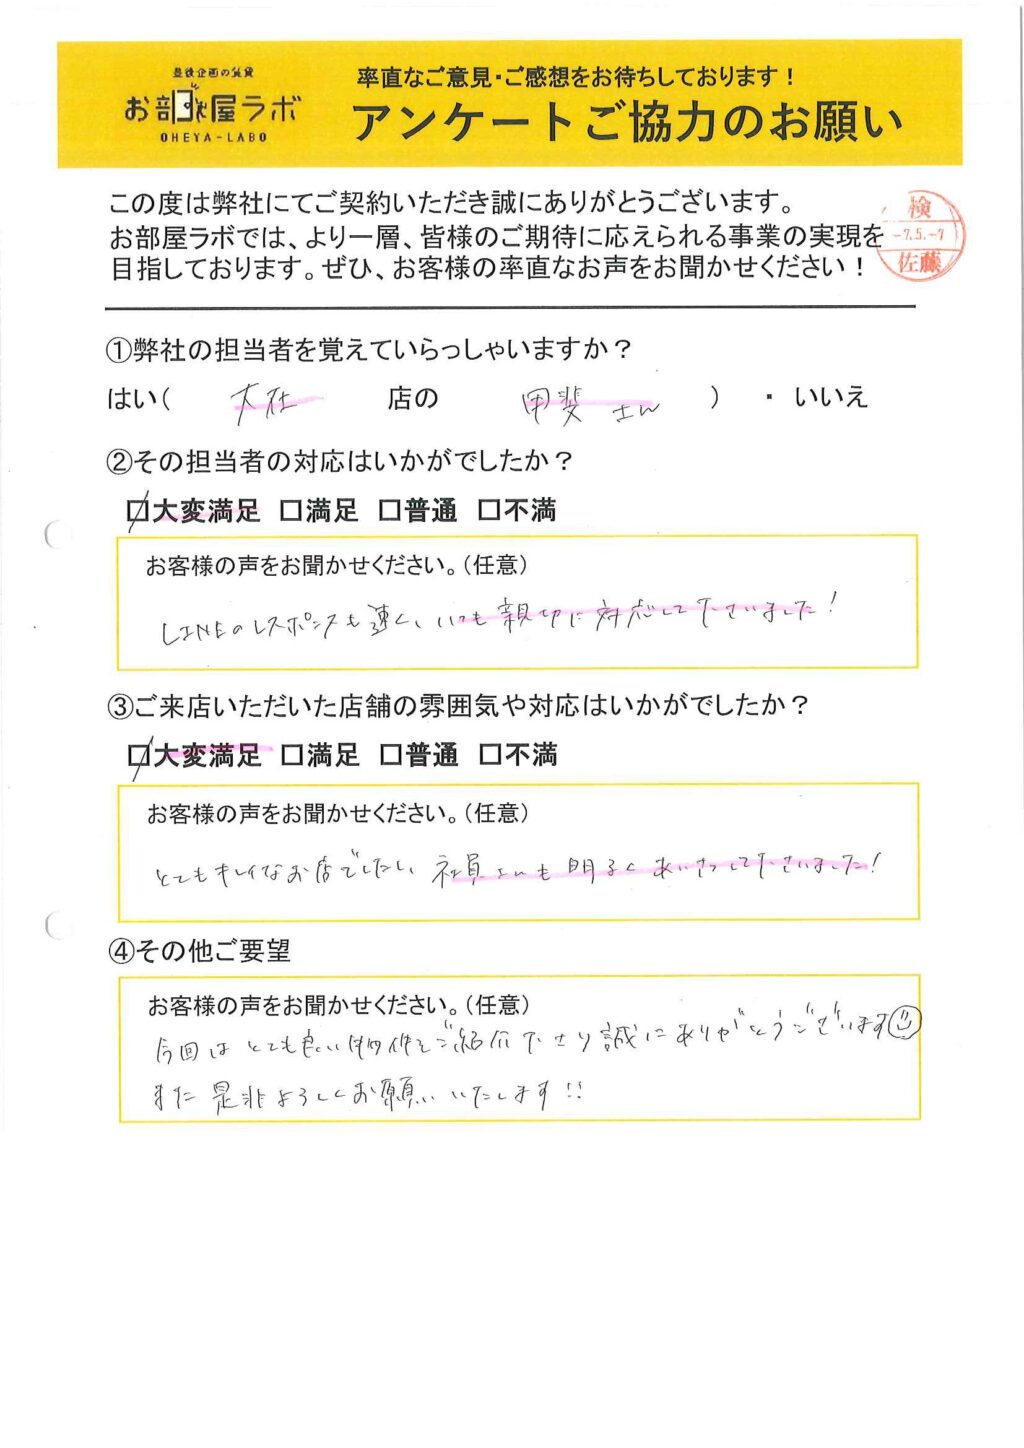 豊後企画の賃貸
お部屋ラボ
OHEYA-LABO
率直なご意見・ご感想をお待ちしております!
アンケートご協力のお願い
この度は弊社にてご契約いただき誠にありがとうございます。
お部屋ラボでは、より一層、皆様のご期待に応えられる事業の実現を
目指しております。ぜひ、お客様の率直なお声をお聞かせください!
検
-7.5.-7
佐藤
①弊社の担当者を覚えていらっしゃいますか?
はい( 大在 店の 甲斐さん ) ・ いいえ
②その担当者の対応はいかがでしたか?
□大変満足 □満足 □普通 □不満
お客様の声をお聞かせください。(任意)
LINEのレスポンスも速く、いつも親切に対応して下さいました!
③ご来店いただいた店舗の雰囲気や対応はいかがでしたか?
□大変満足 □満足 □普通 □不満
お客様の声をお聞かせください。(任意)
とてもキレイなお店でしたし、社員さんも明るくあいさつして下さいました!
④その他ご要望
お客様の声をお聞かせください。(任意)
今回はとても良い物件をご紹介下さり誠にありがとうございます
また是非よろしくお願いいたします!!